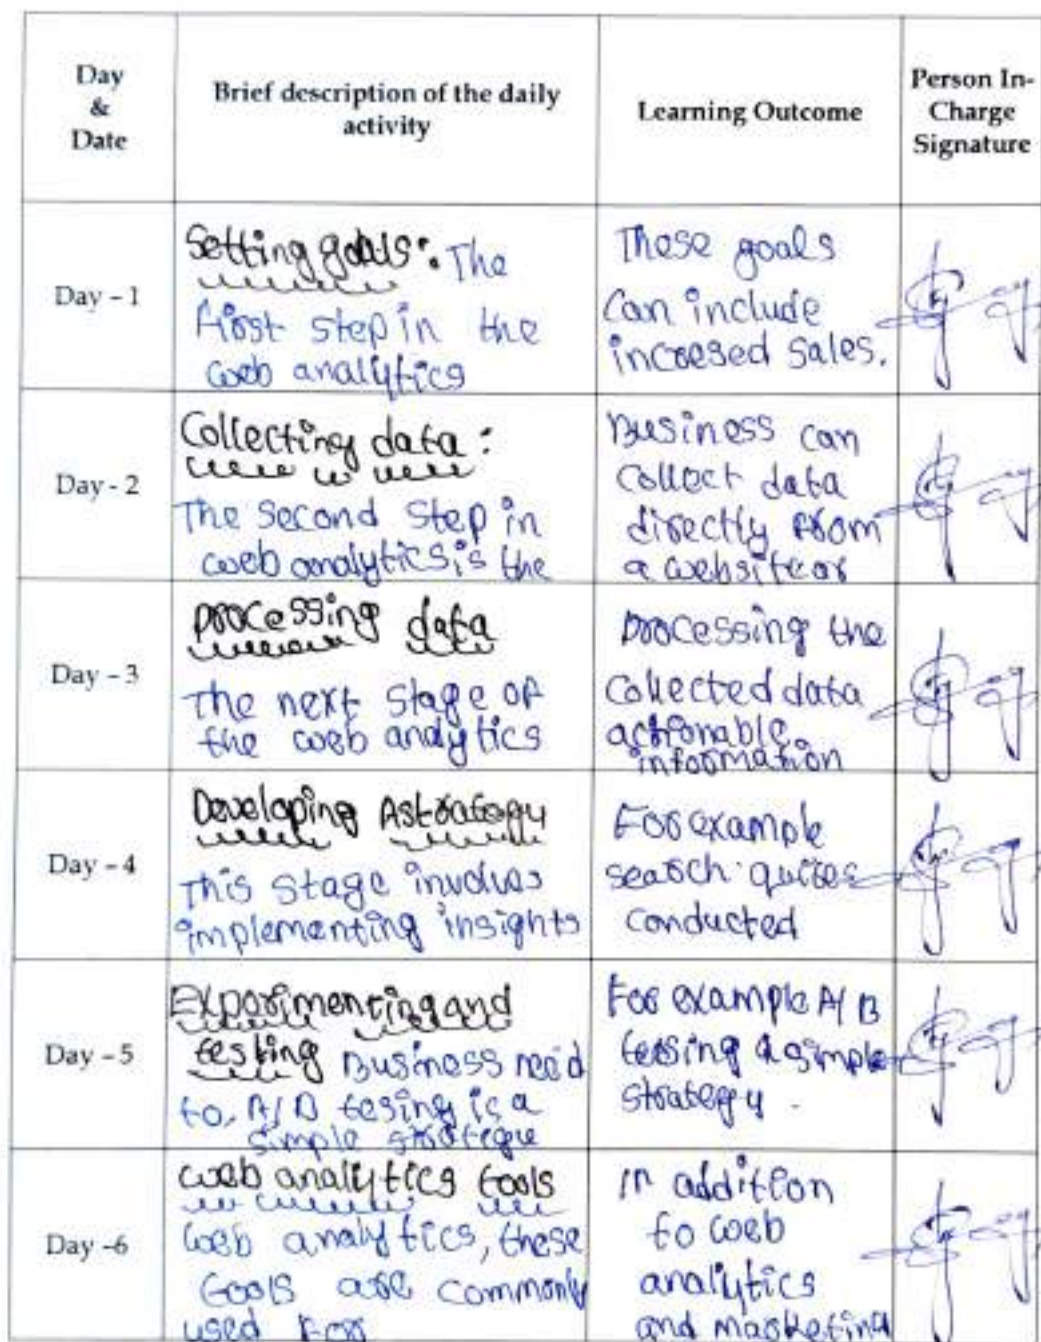 Day
&
Date
Brief description of the daily
activity
Learning Outcome
Person In-
Charge
Signature
Day - 1
Setting goals: The
First step in the
web analytics
These goals
can include
incresed sales.
Day - 2
Collecting data:
The second step in
web analytics is the
Business can
collect data
directly from
a website or
Day - 3
processing data
The next stage of
the web analytics
processing the
collected data
actionable
information
Day - 4
Developing A strategy
This stage involves
implementing insights
For example
search
conducted
Day - 5
Experimenting and
testing Business need
to, A/B tesing is a
simple
For example A/B
tesing a simple
strategy.
Day -6
web analytics tools
web analytics, these
tools are commonly
used for
in addition
to web
analytics
and marketing